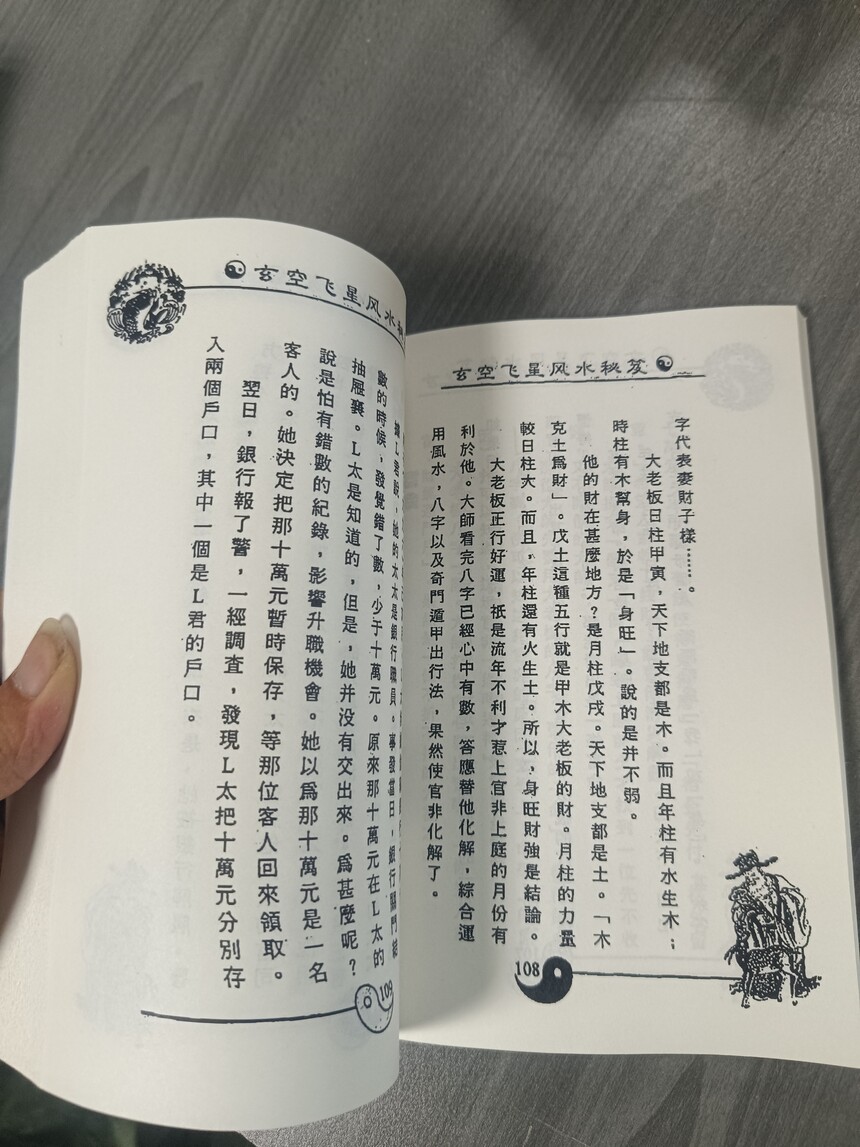 玄空飞星风水秘笈
字代表妻財子樣……。
大老板日柱甲寅，天下地支都是木。而且年柱有水生木；
時柱有木幫身，於是「身旺」。說的是并不弱。
他的財在甚麼地方？是月柱戊戌。天下地支都是土。「木
克土爲財」。戊土這種五行就是甲木大老板的財。月柱的力量
較日柱大。而且，年柱還有火生土。所以，身旺財強是結論。
大老板正行好運，祇是流年不利才惹上官非上庭的月份有
利於他。大師看完八字已經心中有數，答應替他化解，綜合運
用風水，八字以及奇門遁甲出行法，果然使官非化解了。
108
玄空飞星风水秘
據L君說，她的太太是銀行職員。事發當日，銀行關門結
數的時候，發覺錯了數，少于十萬元。原來那十萬元在L太的
抽屜裏。L太是知道的，但是，她并没有交出來。爲甚麼呢？
說是怕有錯數的紀錄，影響升職機會。她以爲那十萬元是一名
客人的。她決定把那十萬元暫時保存，等那位客人回來領取。
翌日，銀行報了警，一經調查，發現L太把十萬元分別存
入兩個戶口，其中一個是L君的戶口。
109